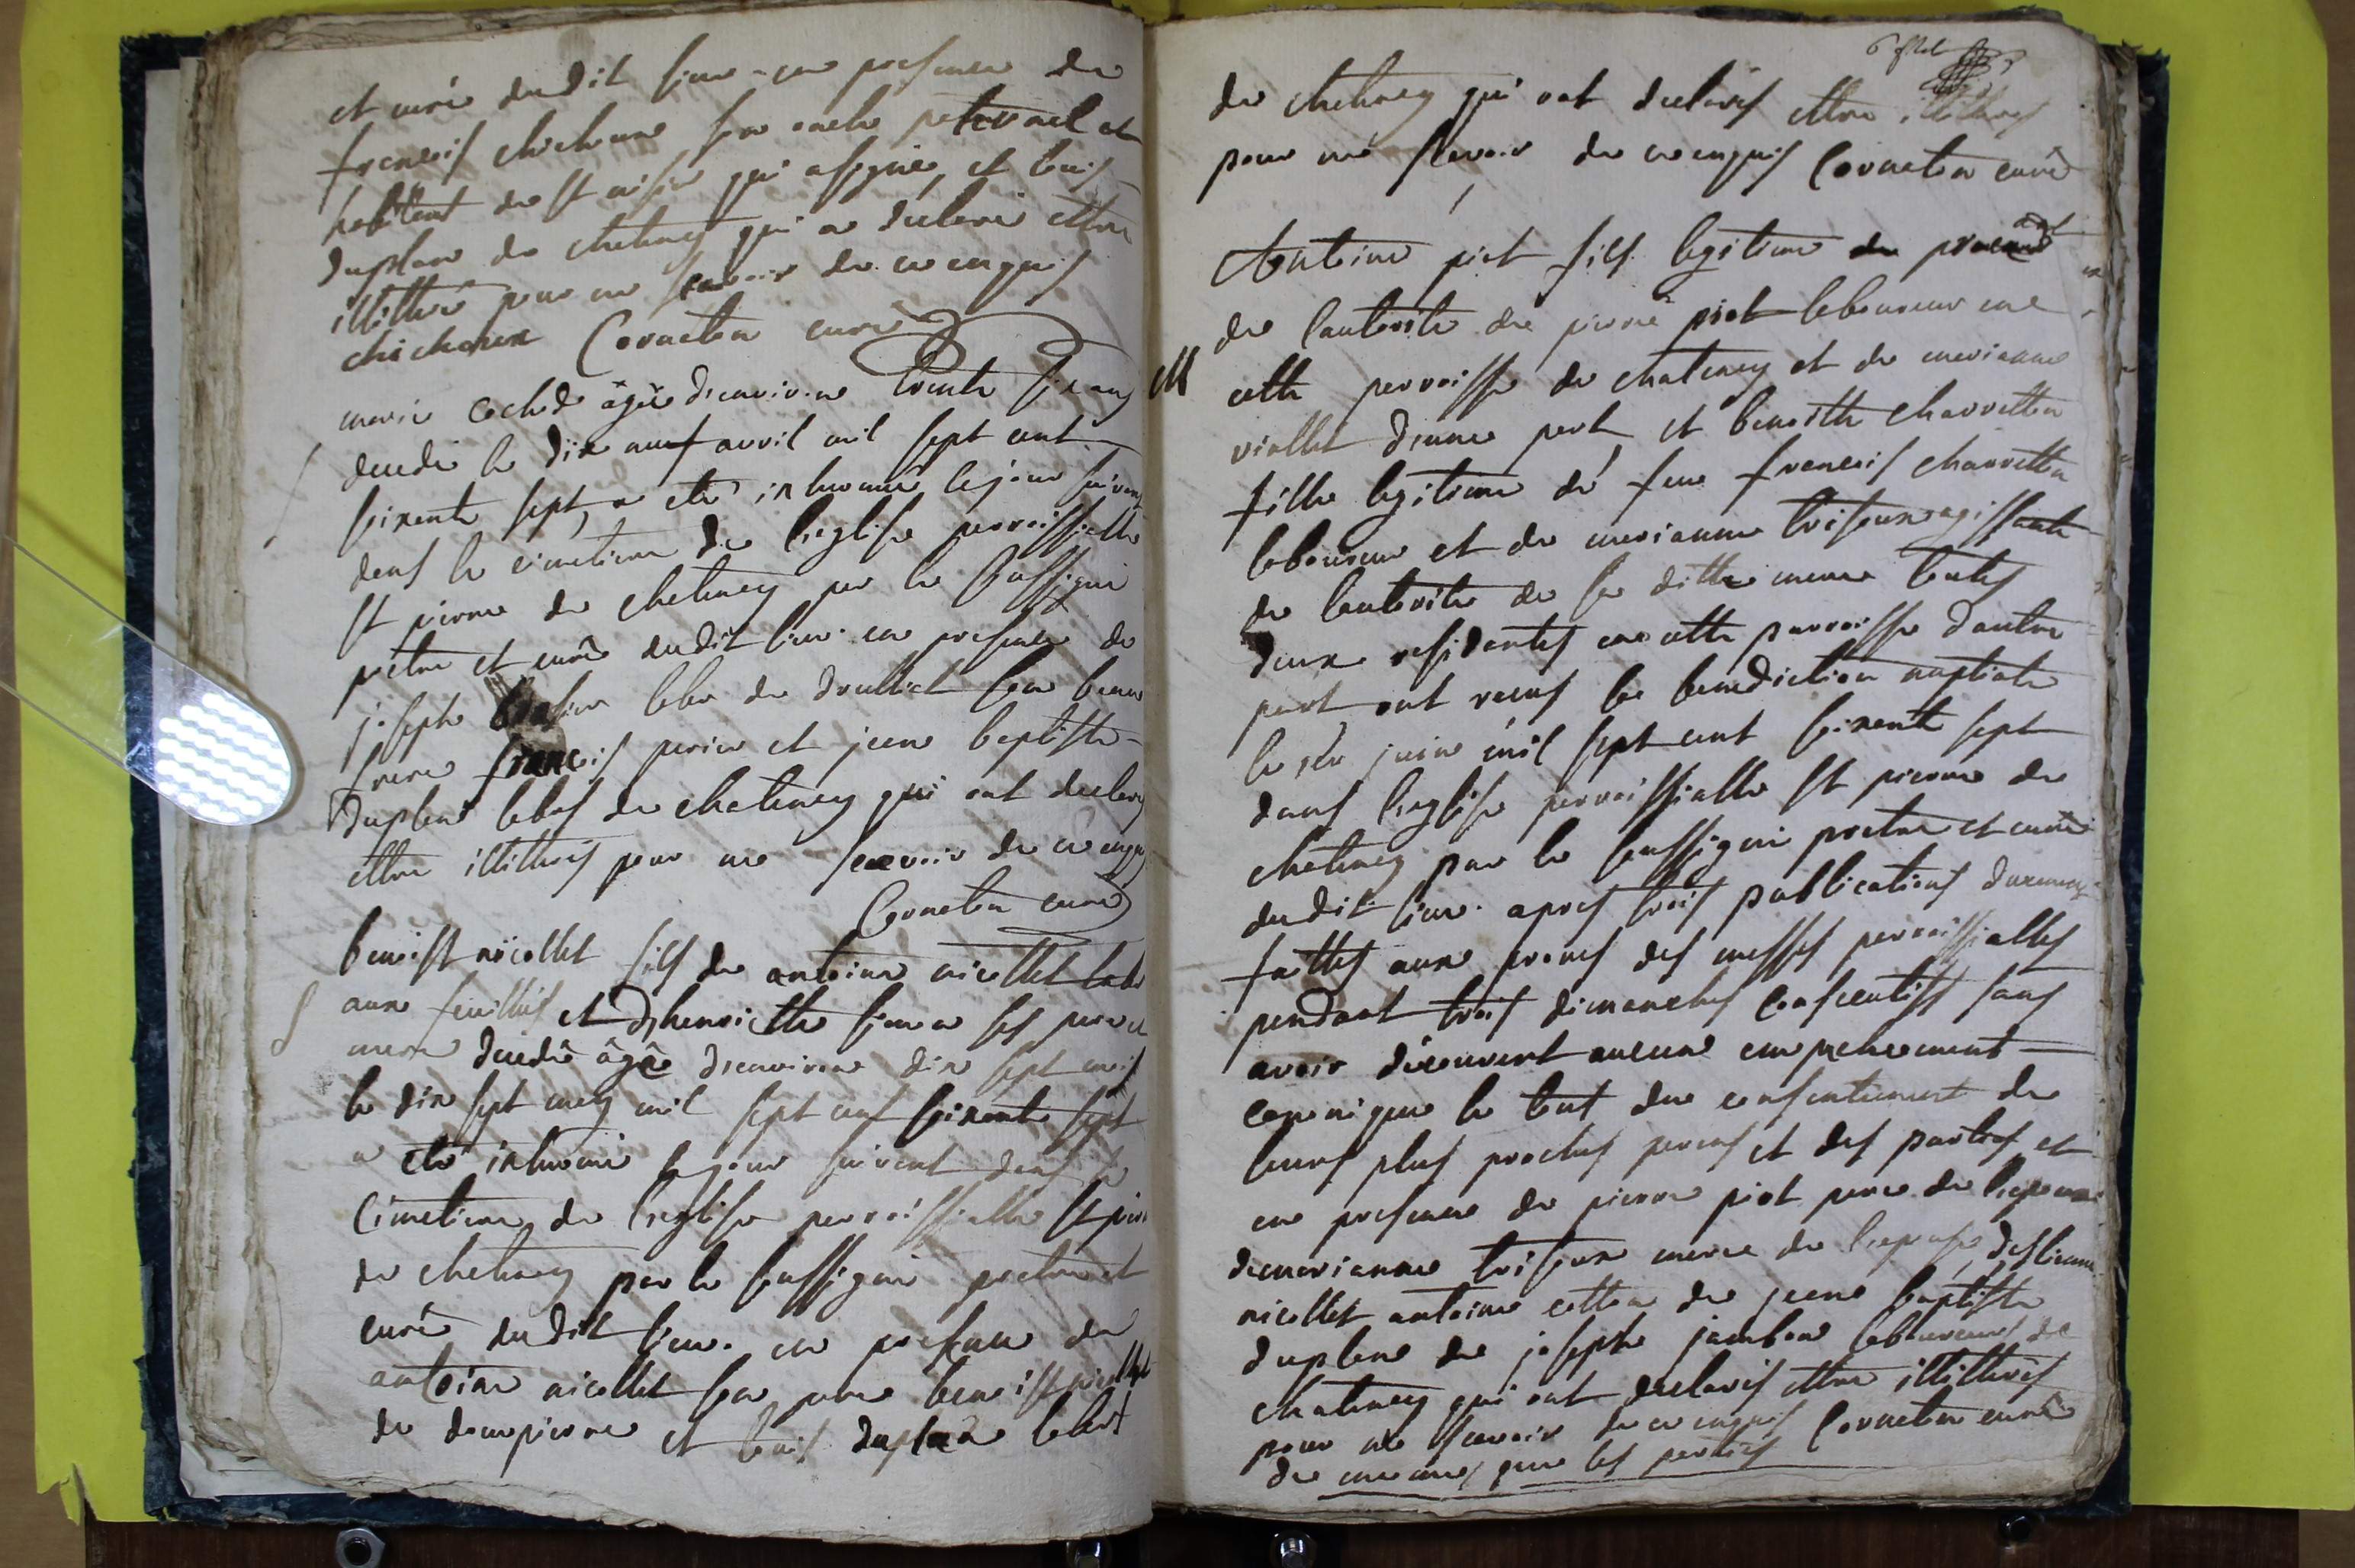 et curé dudit lieu en presence de
francois chichoux son oncle paternel et
habitant de st nisier qui asigné, et louis
duplan de chatenay qui a declaré ettre
illittré pour ne scavoir de ce enquis
chichoux Corneton curé
marie cochod âgée denviron trente six ans
decedé le dix neuf avril mil sept cent
soixante sept, a eté inhumé le jour suivant
dans le cimetiere de leglise parroissialle
st pierre de chatenay par le soussigné
pretre et curé dudit lieu en presence de
josephe labo de son beau
frere francois perier et jean baptiste
duplan labos de chatenay qui ont declaré
ettre illittrés pour ne scavoir de ce enquis
Corneton curé
benoist nicollet fils de antoine nicollet labo
aux feuillées et dhenriette ses pere et
mere decedé âgé denviron dix sept mois
le dix sept may mil sept cent soixante sept
a eté inhumé le jour suivant dans le
cimetiere de leglise parroissialle st pierre
de chatenay par le soussigné pretre et
curé dudit lieu en presence de
antoine nicollet son pere benoist nicollet
de dompierre et louis duplan labos
de chatenay qui ont declarés ettre illittrés
pour ne scavoir de ce enquis Corneton curé
M
Antoine piot fils legitime procedant
de lautorité de pierre piot laboureur en
cette parroisse de chatenay et de marianne
viollet dune part, et benoitte charretton
fille legitime de feu francois charretton
laboureur et de marianne trisoux agissante
de lautorité de sa ditte mere toutes
deux residentes en cette parroisse dautre
part ont receus la benediction nuptiale
le juin mil sept cent soixante sept
dans leglise parroissialle st pierre de
chatenay par le soussigné pretre et curé
dudit lieu apres trois publications
faittes aux prones des messes parroissialles
pendant trois dimanches consecutifs sans
avoir decouvert aucun empechement
canonique le tout du consentement de
leurs plus proches parens et des parties et
en presence de pierre piot pere de lepoux
de marianne trisoux mere de lepouse,
nicollet antoine cotton de jean baptiste
duplan de josephe jambon laboureurs de
chatenay qui ont declarés ettre illittrés
pour ne scavoir de ce enquis Corneton curé
de meme que les parties